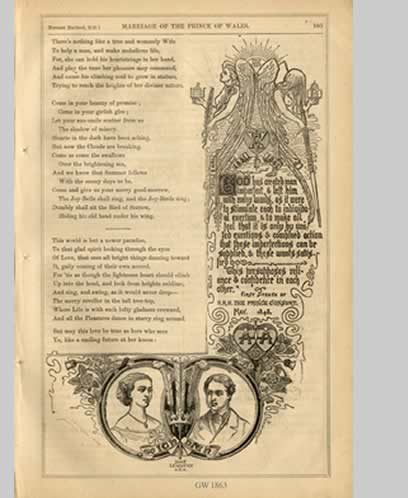 MARRIAGE OF THE PRINCE OF WALES.
There's nothing like a true and womanly Wife
To help a man, and make melodious life,
For, she can hold his heartstrings in her hand,
And play the tune her pleasure may command,
And cause his climbing soul to grow in stature,
Trying to reach the heights of her diviner nature.
Come in your beauty of promise;
Come in your girlish glee;
Let your sun-smile scatter from us
The shadow of misery.
Hearts in the dark have been aching,
But now the Clouds are breaking.
Come as come the swallows
Over the brightening sea,
And we know that Summer follows
With the sunny days to be.
Come and give us your merry good-morrow,
The Joy-Bells shall ring, and the Joy-Birds sing;
Dumbly shall sit the Bird of Sorrow,
Hiding his old head under his wing.
This world is but a newer paradise,
To that glad spirit looking through the eyes
Of Love, that sees all bright things dancing toward
It, gaily coming of their own accord.
For 'tis as though the lightsome heart should climb
Up into the head, and look from heights sublime,
And sing, and swing, as it would never drop—
The merry reveller in the tall tree-top,
Where Life is with such lofty gladness crowned,
And all the Pleasures dance in starry ring around.
But may this love be true as hers who sees
Ye, like a smiling future at her knees:
GOD has created man
imperfect, & left him
with many wants, as it were
to stimulate each to individu
al exertion, & to make all
feel that it is only by uni-
ted exertions & combined action
that these imperfections can be
supplied, & these wants satis-
fied
This presupposes reli-
ance & confidence in each
other."
First Speech of
H.R.H. THE PRINCE CONSORT.
May. 1848.
GW 1863